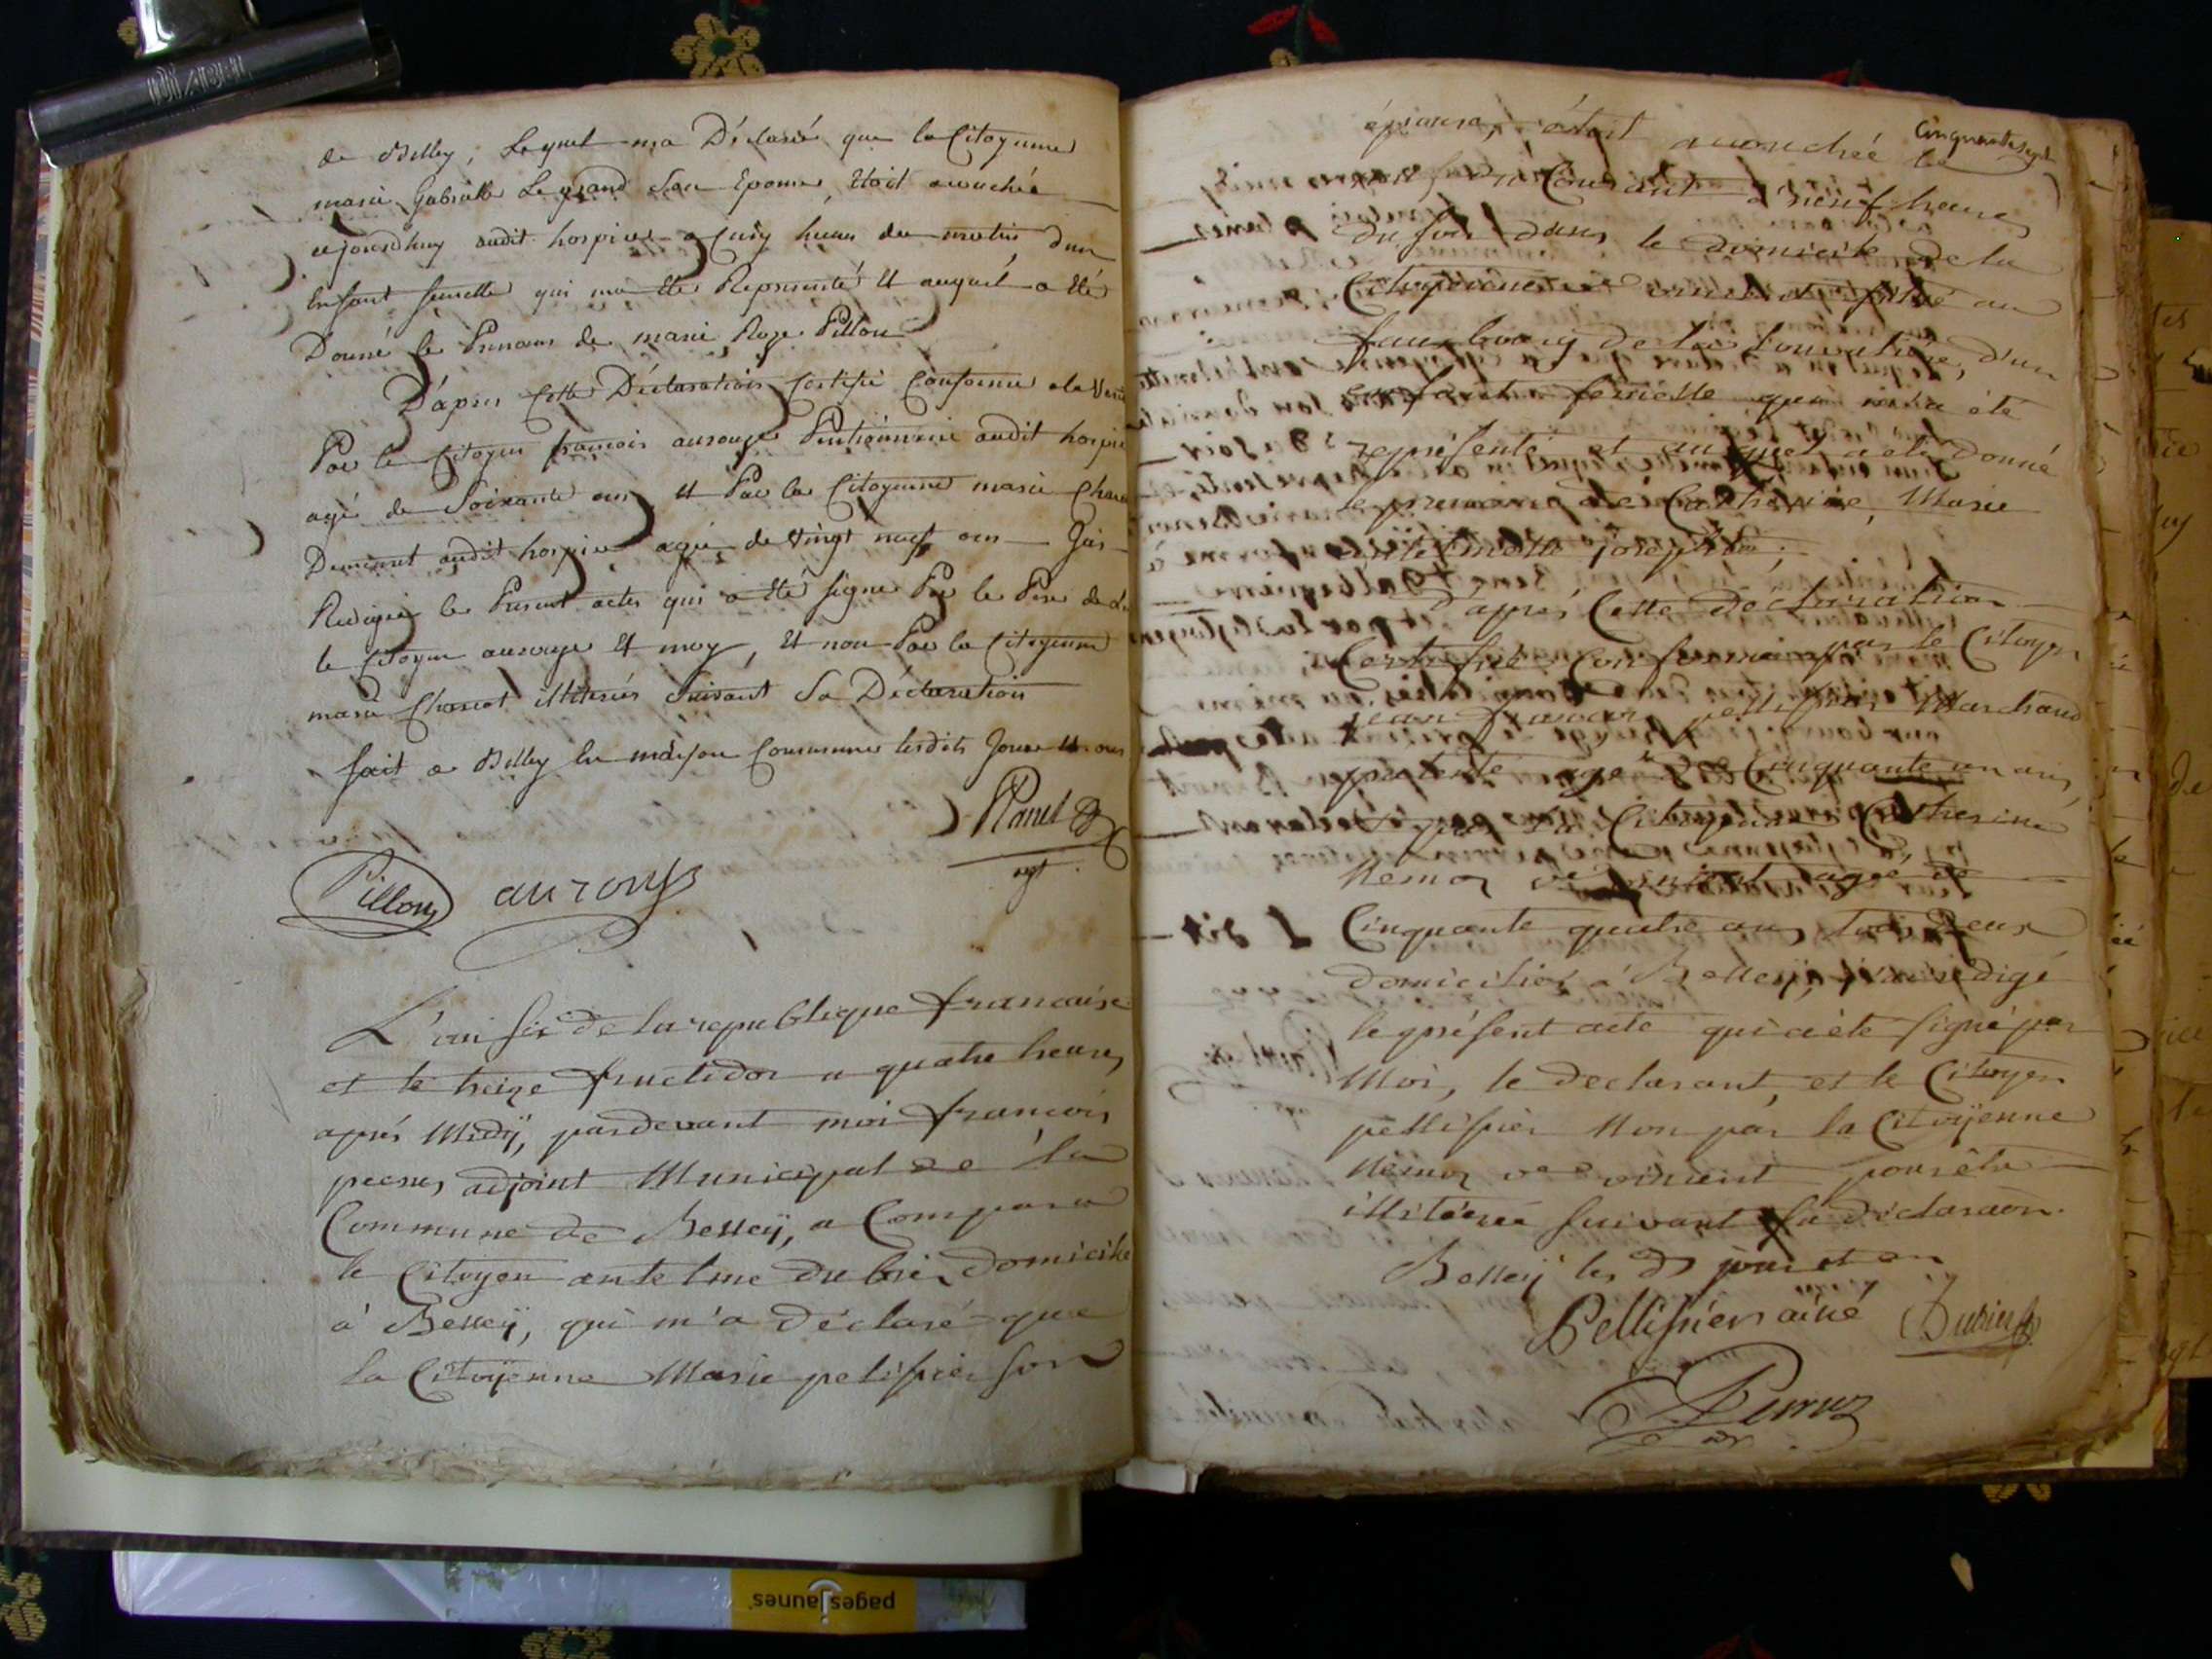 de Belley, Lequel ma Déclaré que la Citoyenne
marie Gabrielle Legrand Son Epouse, Etoit acouchée
aujourdhuy audit hospice a Cinq heures du matin dun
Enfant femelle qui ma Eté Represente Et auquel a Eté
Donné le Prenom de marie Roze Pillon
D'apres Cette Déclaration Certifié Conforme a la Verité
Par le Citoyen francois auzouge Pentionnaire audit hospice
agé de Soixante ans Et Par la Citoyenne marie
Demeurant audit hospice agée de Vingt neuf ans Jai
Redigée le Present acte qui a Eté Signé Par le Pere de
le Citoyen auzouge Et moy, Et non Par la Citoyenne
marie Charcot illiterée Suivant Sa Déclaration
fait a Belley En maison Commune lesdits Jour Et an
agt
Pillon
L'an six de la republique francaise
et le treize fructidor a quatre heures
aprés Midÿ, pardevant moi francois
peruz adjoint Municipal de la
Commune de Belleÿ, a Comparu
le Citoyen antelme dubier domicilié
à Belleÿ, qui m'a déclaré que
la Citoÿenne Marie pelissier son
Cinquantesept
épouse, étoit accouchée le
du Courant a neuf heures
du soir dans le domicile de la
Citoyenne situé au
fauxbourg de la , d'un
enfant femelle qui m'a été
représenté et auquel a été donné
le prenom de Catherine, Marie
josephte;
d'aprés Cette déclaration
Certifiée Conforme par le Citoyen
jean francois pellissier Marchand
patenté agé de Cinquante un ans,
et par la Citoyenne Catherine
Nemoz ve vincent agée de
Cinquante quatre ans tous deux
domiciliés à Belleÿ, j'ai redigé
le présent acte qui a été signé par
Moi, le declarant, et le Citoyen
pellissier Non par la Citoÿenne
Nemoz ve vincent pour être
illitérée suivant sa déclaraon.
Belleÿ les ds jour et an
Pellissier ainé Dubier
Perruz
adj
pagesjaunes